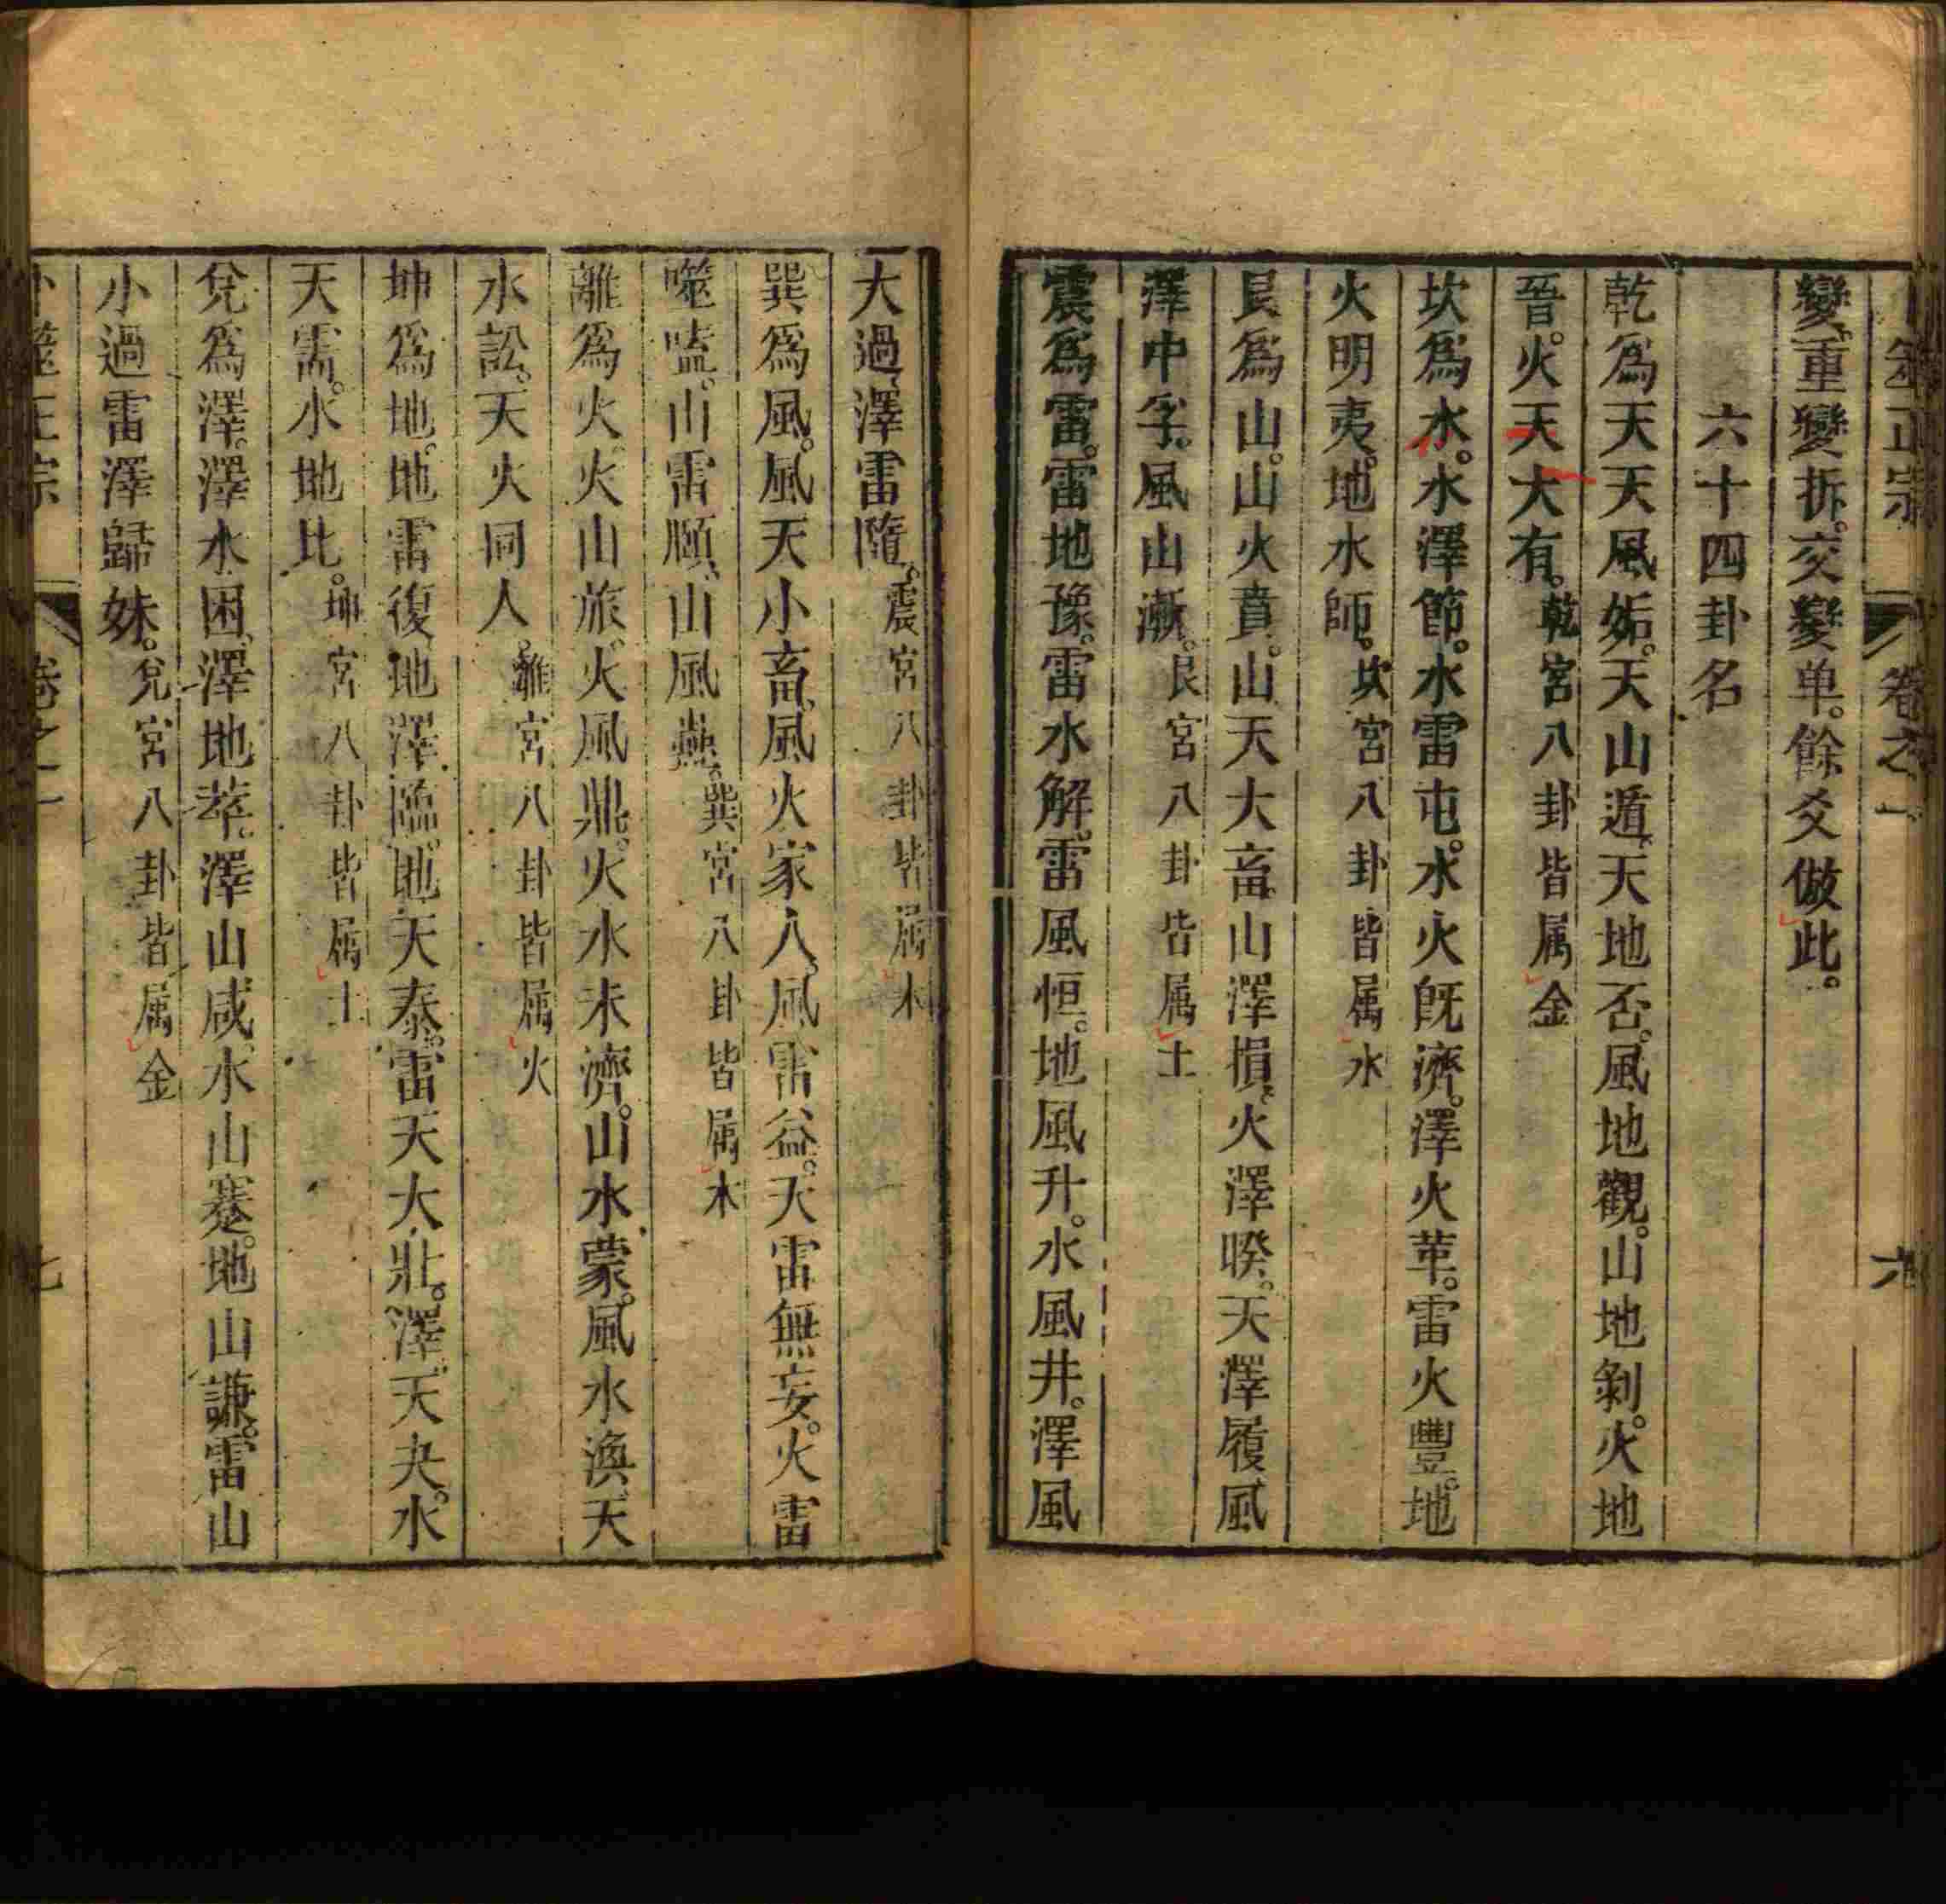 筮正宗 卷之一 六
變。重變拆。交變单。餘爻倣此。
六十四卦名
乾爲天天天風姤。天山遁。天地否。風地觀。山地剝。火地
晉。火天大有。乾宮八卦皆属金
坎爲水。水澤節。水雷屯。水火旣濟。澤火革。雷火豐。地
火明夷。地水師。坎宮八卦皆属水
艮爲山。山火賁。山天大畜。山澤損。火澤睽。天澤履。風
澤中孚。風山漸。艮宮八卦皆属土
震爲雷。雷地豫。雷水解。雷風恒。地風升。水風井。澤風
大過。澤雷隨。震宮八卦皆属木
巽爲風。風天小畜。風火家人。風雷益。天雷無妄。火雷
噬嗑。山雷頤。山風蠱。巽宮八卦皆属木
離爲火。火山旅。火風鼎。火水未濟。山水蒙。風水渙。天
水訟。天火同人。離宮八卦皆属火
坤爲地。地雷復。地澤臨。地天泰。雷天大壯。澤天夬。水
天需。水地比。坤宮八卦皆属土
兌爲澤。澤水困。澤地萃。澤山咸。水山蹇。地山謙。雷山
小過。雷澤歸妹。兌宮八卦皆属金
卜筮正宗 卷之一 七